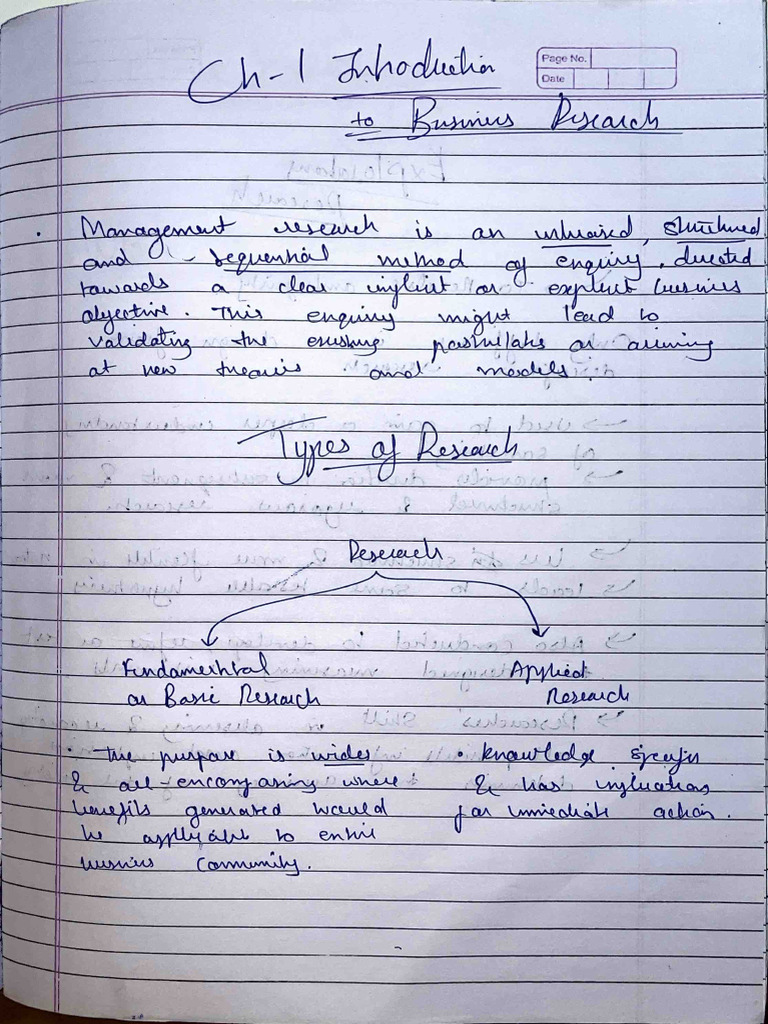 Ch-1 Introduction
Page No.
Date
to Business Research
• Management research is an unbiased, structured
and sequential method of enquiry, directed
towards a clear implicit or explicit business
objective. This enquiry might lead to
validating the existing postulates or arriving
at new theories and models.
Types of Research
Research
Fundamental
or Basic Research
Applied
Research
• The purpose is wider
& all-encompassing where
benefits generated would
be applicable to entire
business community.
• knowledge specific
& has implications
for immediate action.